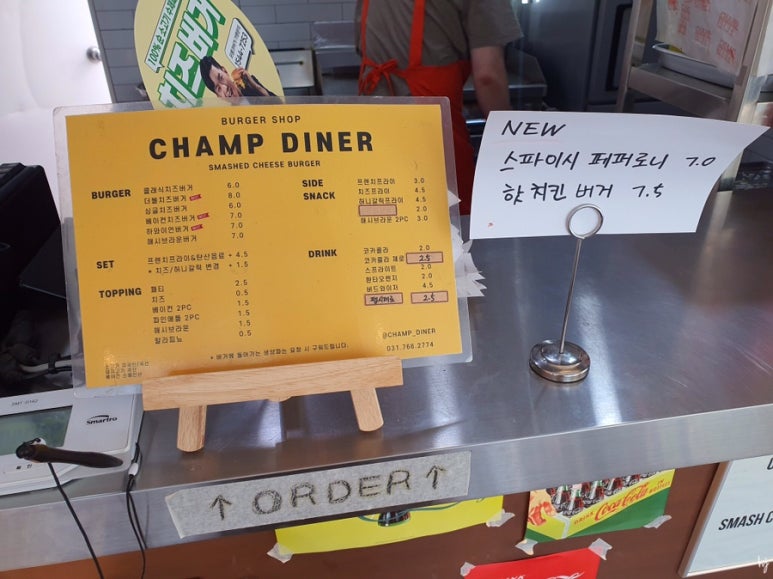 100% 순 소고기 수제
치즈버거
1544-7253
BURGER SHOP
CHAMP DINER
SMASHED CHEESE BURGER
BURGER
클래식치즈버거 6.0
더블치즈버거 8.0
싱글치즈버거 6.0
베이컨치즈버거 7.0
하와이언버거 7.0
해시브라운버거 7.0
SET
프렌치프라이&탄산음료 + 4.5
* 치즈/허니갈릭 변경 + 1.5
TOPPING
패티 2.5
치즈 0.5
베이컨 2PC 1.5
파인애플 2PC 1.5
해시브라운 1.5
할라피뇨 0.5
SIDE
SNACK
프렌치프라이 3.0
치즈프라이 4.5
허니갈릭프라이 4.5
2.0
해시브라운 2PC 3.0
DRINK
코카콜라 2.0
코카콜라 제로 2.5
스프라이트 2.0
환타오렌지 2.0
버드와이저 4.5
펩시제로 2.5
@CHAMP_DINER
031.766.2774
* 버거에 들어가는 생양파는 요청 시 구워드립니다.
NEW
스파이시 페퍼로니 7.0
핫 치킨 버거 7.5
Smartro
↑ ORDER ↑
DRINK
Coca-Cola
SMASH C